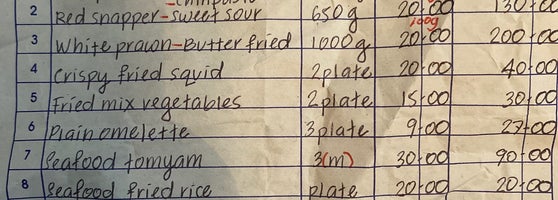 2 Red snapper-sweet sour 650g 20.00 130.00
100g
3 White prawn-Butter fried 1000g 20.00 200.00
4 Crispy fried squid 2plate 20.00 40.00
5 Fried mix vegetables 2plate 15.00 30.00
6 Plain omelette 3plate 9.00 27.00
7 Seafood tomyam 3(m) 30.00 90.00
8 Seafood fried rice plate 20.00 20.00